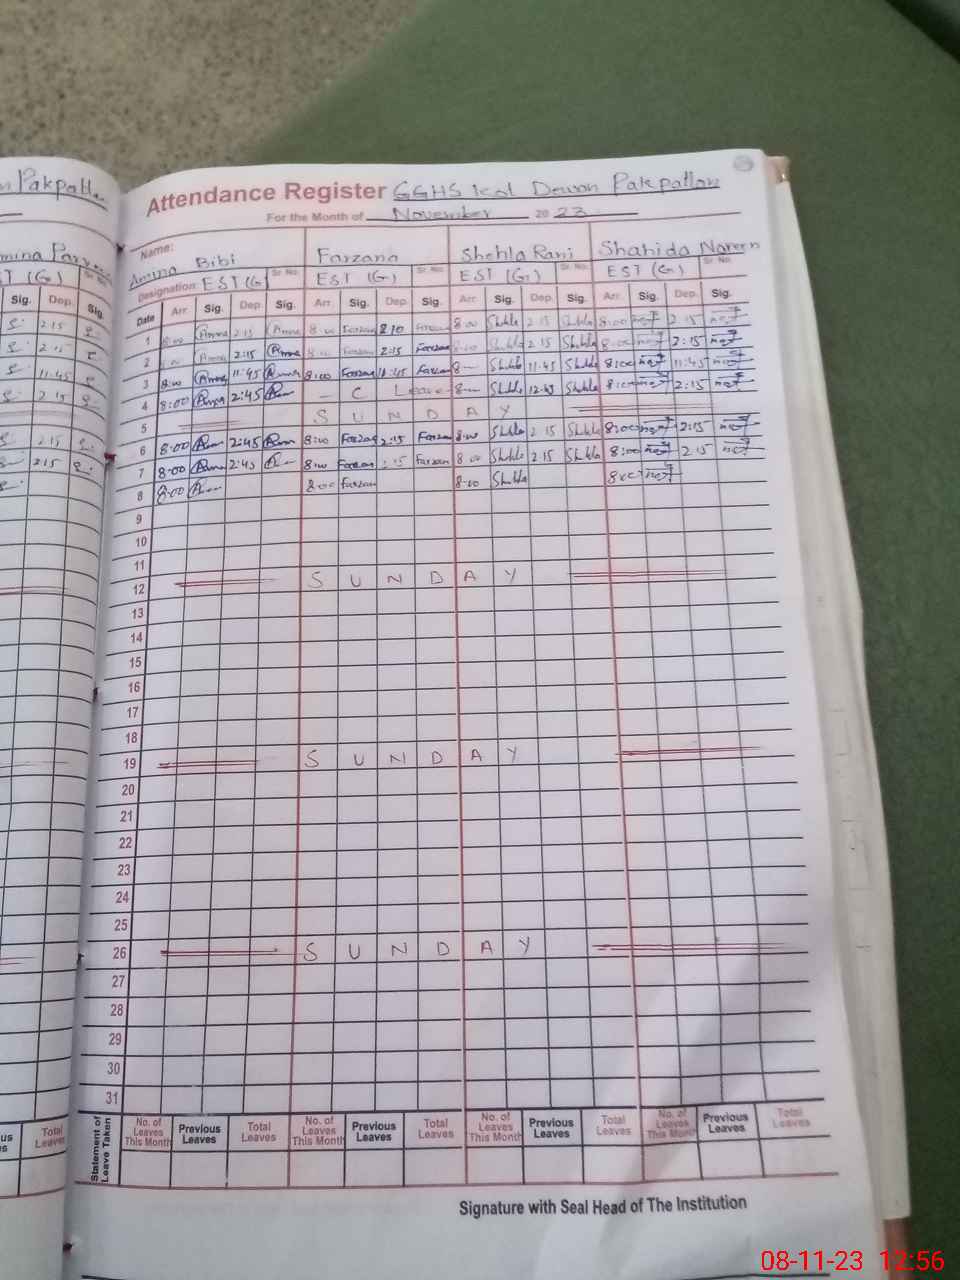 Pakpattan
Attendance Register GGHS Kot Dewan Pakpattan
For the Month of November 20 23
Name: Amina Bibi Farzana Shehla Rani Shahida Nareen
Designation: EST (G) Sr. No. EST (G) Sr. No. EST (G) Sr. No. EST (G) Sr. No.
Sig. Dep. Sig.
Date Arr. Sig. Dep. Sig. Arr. Sig. Dep. Sig. Arr. Sig. Dep. Sig. Arr. Sig. Dep. Sig.
2 15
1 8:00 Amna 2:15 Amna 8:00 Farzan 2:10 Farzan 8:00 Shehla 2 15 Shehla 8:00 2 15
2:15
2 8:00 Amna 2:15 Amna 8:00 Farzan 2:15 Farzan 8:00 Shehla 2 15 Shehla 8:00 2:15
11:45
3 8:00 Amna 11:45 Amna 8:00 Farzan 11:45 Farzan 8— Shehla 11:45 Shehla 8:00 11:45
2 15
4 8:00 Amna 2:45 – C Leave 8— Shehla 12:45 Shehla 8:00 2:15
5 S U N D A Y
2 15
6 8:00 2:45 8:00 Farzan 2:15 Farzan 8:00 Shehla 2 15 Shehla 8:00 2:15
2 15
7 8:00 2:45 8:00 Farzan 2:15 Farzan 8 00 Shehla 2 15 Shehla 8:00 2 15
8 8:00 8:00 Farzan 8:00 Shehla 8:00
9
10
11
12 S U N D A Y
13
14
15
16
17
18
19 S U N D A Y
20
21
22
23
24
25
26 S U N D A Y
27
28
29
30
31
Total Leaves
Statement of Leave Taken
No. of Leaves This Month Previous Leaves Total Leaves No. of Leaves This Month Previous Leaves Total Leaves No. of Leaves This Month Previous Leaves Total Leaves No. of Leaves This Month Previous Leaves Total Leaves
Signature with Seal Head of The Institution
08-11-23 12:56